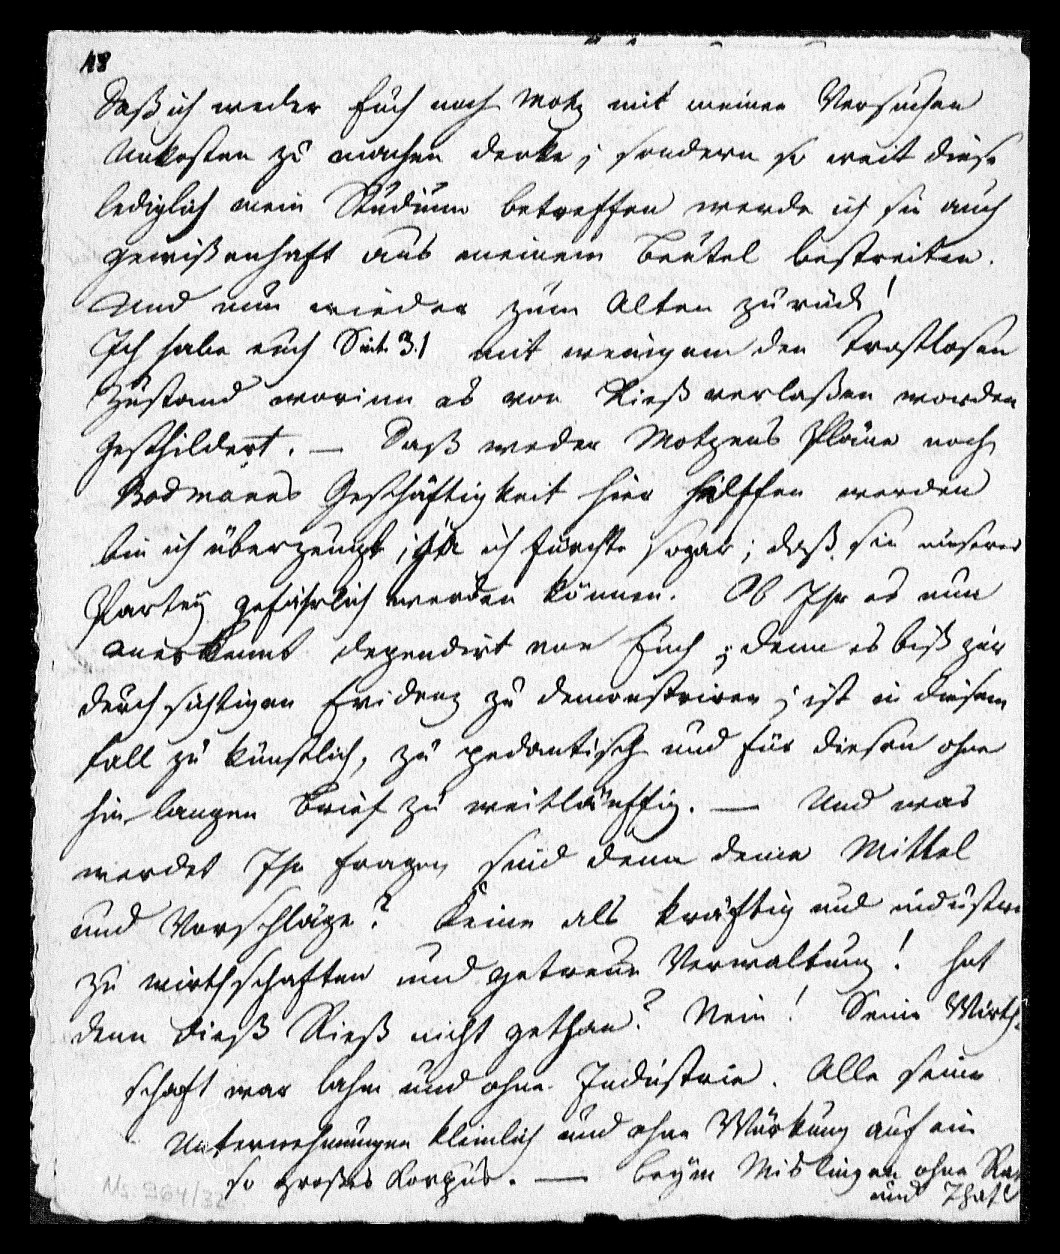 18
Daß ich weder Euch noch Motz mit meinen Versuchen
Unkosten zu machen denke; sondern so weit diese
lediglich mein Studium betreffen werde ich sie auch
gewißenhaft aus meinem Beutel bestreiten.
Und nun wieder zum Alten zurück!
Ich habe euch Seit. 3.1 mit wenigem den trostlosen
Zustand worinn es von Rieß verlaßen worden
geschildert. — Daß weder Motzens Pläne noch
Bodmanns Geschäftigkeit hier hilffen werden
bin ich überzeugt; ja ich fürchte sogar; daß sie unserer
Partey gefährlich werden können. Ob Ihr es nun
anerkennt dependirt von Euch; denn es biß zur
durchsichtigen Evidenz zu demonstriren; ist in diesem
Fall zu künstlich, zu pedantisch und für diesen ohne
hin langen Brief zu weitläuffig. — Und was
werdet Ihr fragen sind denn deine Mittel
und Vorschläge? Keine als kräftig und industri
zu wirthschaften und getreue Verwaltung! hat
denn dieß Rieß nicht gethan? Nein! Seine Wirth-
schaft war lahm und ohne Industrie. Alle seine
Unternehmungen kleinlich und ohne Würkung auf ein
so großes Korpus. — beym Mislingen ohne Ra
und That
Ms. 964/32